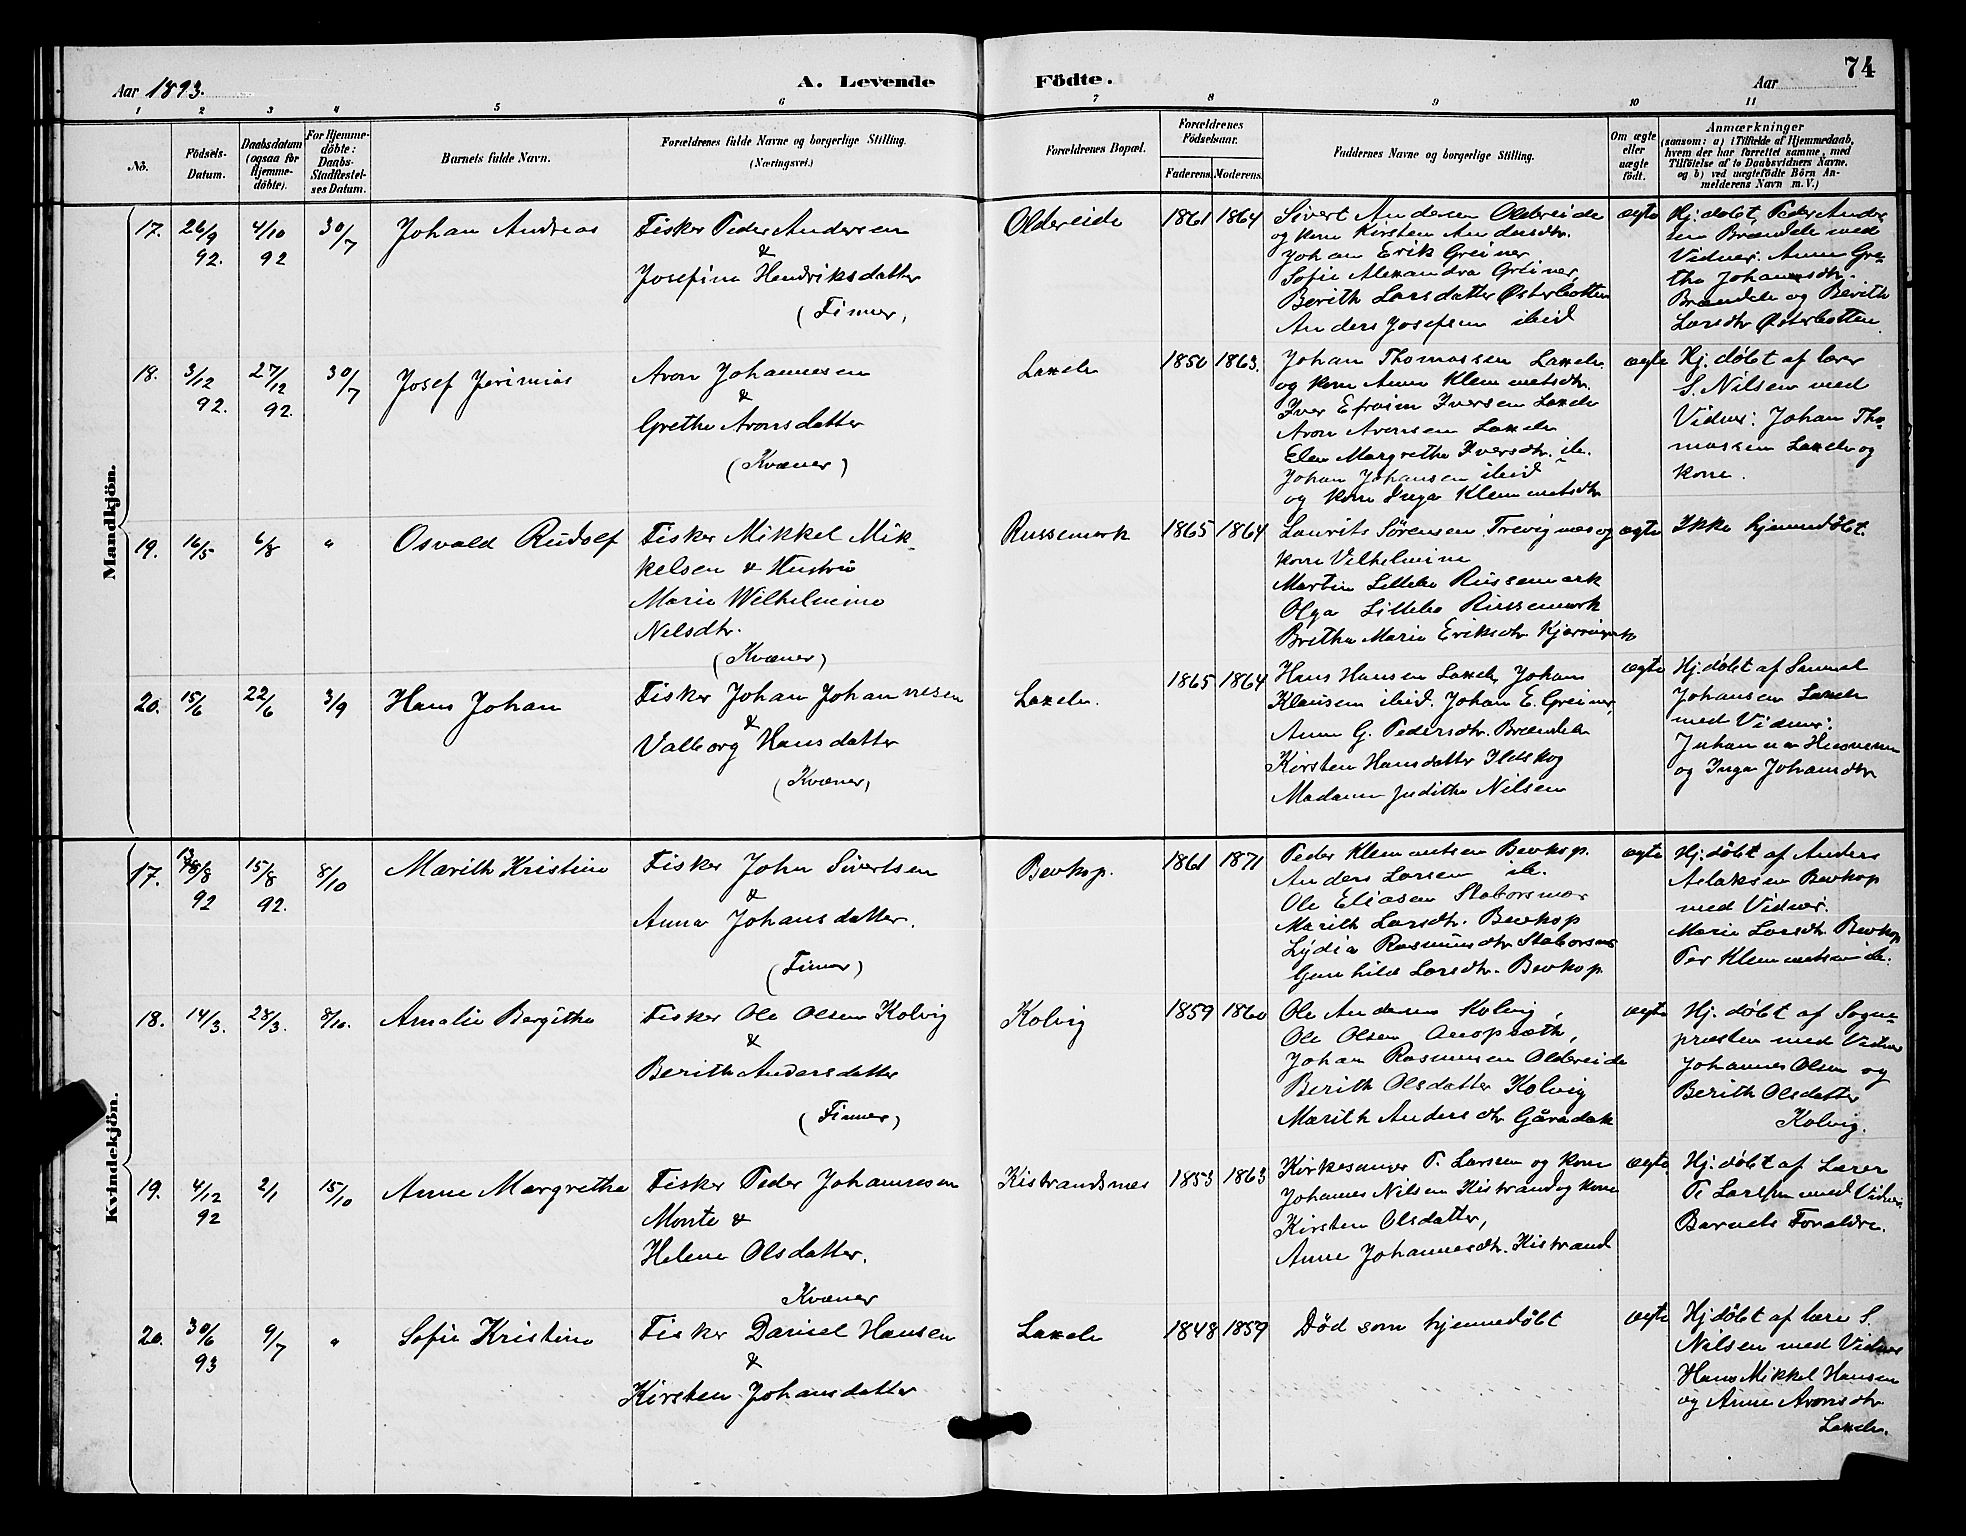 Aar 1893.
A. Levende Födte.
Aar
74
1 2 3 4 5 6 7 8 9 10 11
No.
Födsels-
Datum.
Daabsdatum
(ogsaa for
Hjemme-
döbte).
For Hjemme-
döbte:
Daabs-
Stadfæstel-
ses Datum.
Barnets fulde Navn.
Forældrenes fulde Navne og borgerlige Stilling.
(Næringsvei.)
Forældrenes Bopæl.
Forældrenes
Födselsaar.
Faderens. Moderens.
Faddernes Navne og borgerlige Stilling.
Om ægte
eller
uægte
födt.
Anmærkninger
(saasom: a) i Tilfælde af Hjemmedaab,
hvem der har forrettet samme, med
Tilföielse af to Daabsvidners Navne.
og b) ved uægtefödte Börn An-
melderens Navn m. V.)
Mandkjön.
17.
26/9
92.
4/10
92
30/7
Johan Andreas
Fisker Peder Andersen
&
Josefine Hendriksdatter
(Finner)
Oldereide
1861
1864
Sivert Andersen Oldereide
og kone Kirsten Andersdtr.
Johan Erik Greiner
Sofie Alexandra Greiner
Berith Larsdatter Østerbotten
Anders Josefsen ibid
ægte
Hj. døbt, Peder Ander
sen Brændelv med
Vidner. Anne Gre-
the Johansdtr.
Brændelv og Berith
Larsdtr Østerbotten
18.
3/12
92.
27/12
92.
30/7
Josef Jerimias
Aron Johannesen
&
Grethe Aronsdatter
(Kvæner)
Laxelv
1850
1863.
Johan Thomassen Laxelv
og kone Anne Klemmetsdtr.
Iver Efraim Iversen Laxelv
Aron Aronsen Laxelv
Elen Margrethe Iversdtr. ib.
Johan Johansen ibid
og kone Inga Klemmetsdtr
ægte
Hj. døbt af lærer
S. Nilsen med
Vidner: Johan Tho-
massen Laxelv og
kone.
19.
16/5
6/8
"
Osvald Rudolf
Fisker Mikkel Mik-
kelsen & Hustru
Marie Wilhelmine
Nilsdtr.
(Kvæner)
Russemark
1865
1864
Laurits Sørensen Trevignæs og
kone Vilhelmine
Martin Lillebo Russemark
Olga Lillebo Russemark
Brithe Marie Eriksdtr
ægte
Ikke hjemmedøbt.
20.
15/6
22/6
3/9
Hans Johan
Fisker Johan Johannesen
&
Valborg Hansdatter
(Kvæner)
Laxelv.
1865
1864
Hans Hansen Laxelv, Johan
Klausen ibid. Johan E. Greiner,
Anne G. Pedersdtr. Brændelv
Kirsten Hansdatter Ildskog
Madame Judithe Nilsen
ægte
Hj. døbt af Samuel
Johansen Laxelv
med Vidner:
og Inga Johansdtr
Kvindekjön.
17.
13/8
92
15/8
92.
8/10
Marith Kristine
Fisker John Sivertsen
&
Anna Johansdatter.
(Finner)
Bevkop.
1861
1871
Peder Klemmetsen Bevkop.
Anders Larsen ib.
Ole Eliasen Staborsnæs
Marith Larsdtr. Bevkop
Lydia Rasmusdtr Staborsnæs
Gunhild Larsdtr. Bevkop
ægte
Hj. døbt af Anders
Aslaksen Bevkop
med Vidner.
Marie Larsdtr. Bevkop
Per Klemmetsen ib.
18.
14/3.
28/3.
8/10.
Amalie Bergithe
Fisker Ole Olsen Kolvig
&
Berith Andersdatter
(Finner)
Kolvig
1859
1860
Ole Andersen Kolvig,
Ole Olsen
Johan Rasmussen Oldereide
Berith Olsdatter Kolvig
Marith Andersdtr Gåradak
ægte
Hj. døbt af Sogne-
præsten med Vidner
Johannes Olsen og
Berith Olsdatter
Kolvig.
19.
4/12
92
2/1
15/10
Anne Margrethe
Fisker Peder Johannesen
Monte &
Helene Olsdatter.
Kvæner
Kistrandsnæs
1853
1863
Kirkesanger P. Larsen og kone
Johannes Nilsen Kistrand og kone
Kirsten Olsdatter,
Anne Johannesdtr. Kistrand
ægte
Hj. døbt af Lærer
P. Larsen med Vidner.
Barnets Forældre.
20.
30/6
93
9/7
"
Sofie Kristine
Fisker Daniel Hansen
&
Kirsten Johansdatter
Laxelv
1848
1859
Død som hjemmedøbt
ægte
Hj døbt af lærer S.
Nilsen med Vidner
Hans Mikkel Hansen
og Anne Aronsdtr
Laxelv.